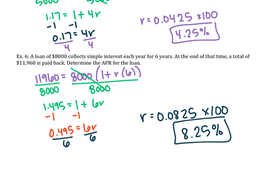 8000 8000
1.17 = 1 + 4r
-1 -1
0.17 = 4r
4 4
r = 0.0425 x100
4.25%
Ex. 6: A loan of $8000 collects simple interest each year for 6 years. At the end of that time, a total of
$11,960 is paid back. Determine the APR for the loan.
11960 = 8000(1 + r(6))
8000 8000
1.495 = 1 + 6r
-1 -1
0.495 = 6r
6 6
r = 0.0825 x100
8.25%